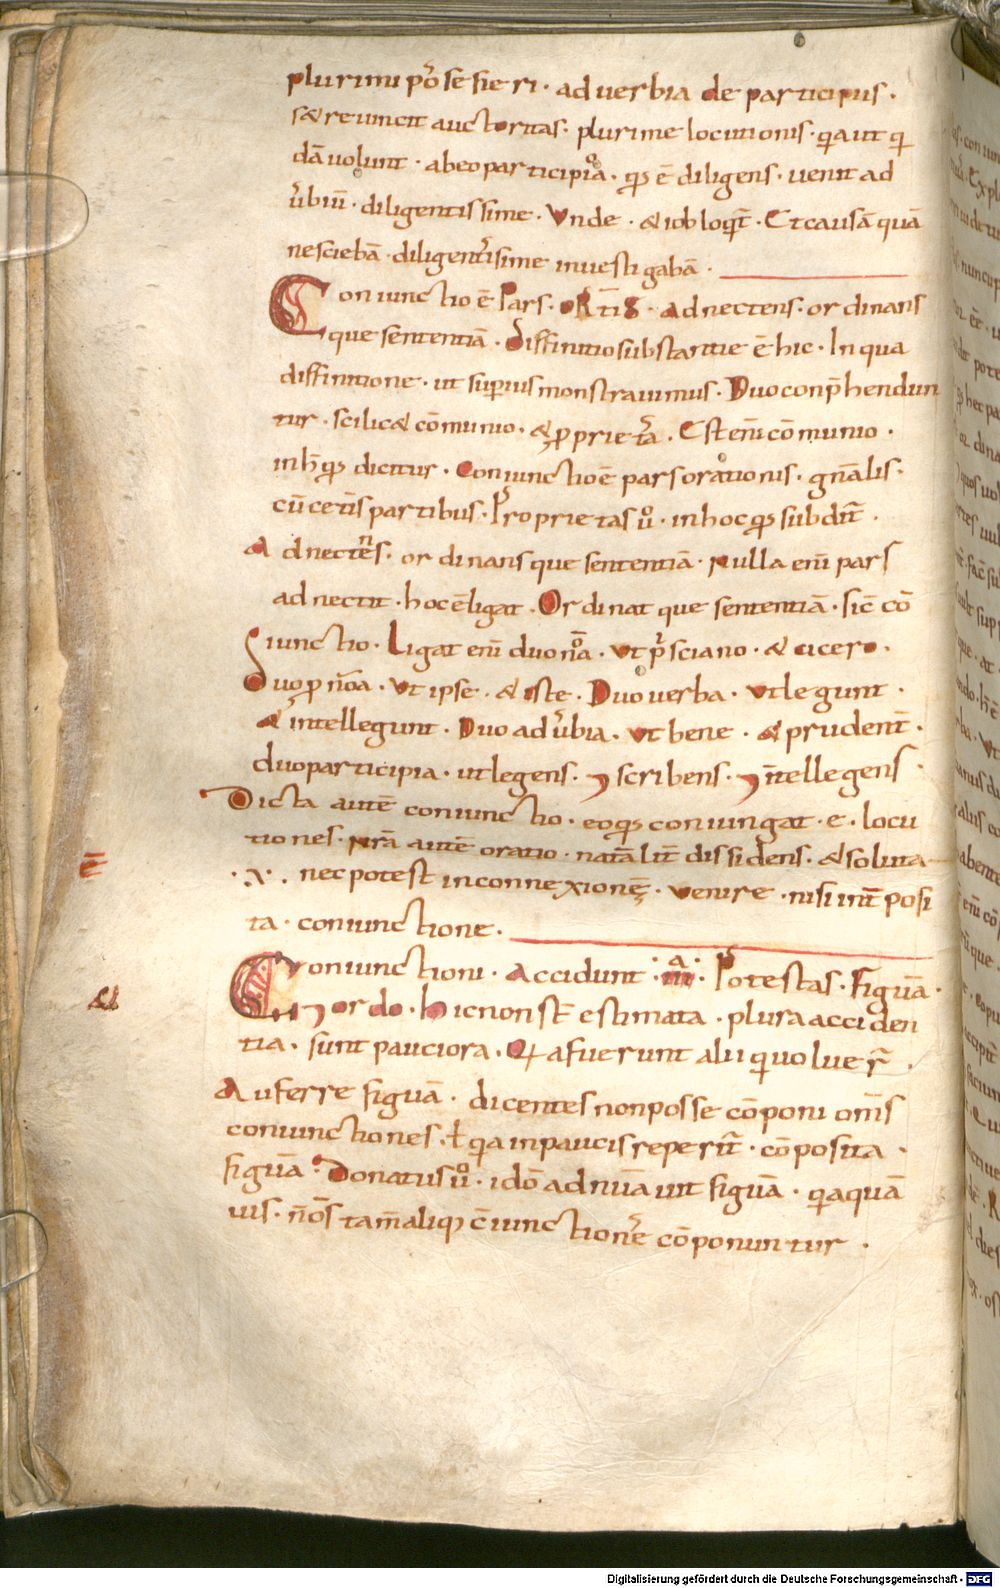 plurimi põse fieri · aduerbia de participiis ·
s&reuincit auctoritas · plurime locutionis · qia ut qi
dā uolunt · abeo participia · qs ē diligens · uenit ad
ūbiū · diligentissime · Vnde · & iob loqt̄ · Et causā quā
nesciebā · diligentisime inuestigabā ·
Coniunctio ē Pars · ORTIS · Adnectens · ordinans
que sententiā · Diffinitio substantie ē hic · In qua
diffinitione · ut supius monstrauimus · Duo conphendun
tur · scilic& cōmunio · & pprietā · Est enī cōmunio ·
in h̄ qs dicitur · Coniunctio ē pars orationis · gn̄alis ·
cū cet̄is partibus · Proprietas ů · in hoc qs subdit̄ ·
Adnectens · ordinansque sententiā · Nulla enī pars
adnectit · hoc ē ligat · Ordinat que sententiā · sic̄ cō
iunctio · Ligat enī duo nōa · Vt p̄sciano · & cicero ·
Duo p nōa · Vt ipse · & iste · Duo uerba · Vt legunt ·
& intellegunt · Duo adūbia · Vt bene · & prudent̄ ·
duo participia · ut legens · ⁊ scribens · ⁊ īntellegens
Dicta autē coniunctio · eo qs coniungat · e · locu
tiones · Nrā autē oratio · nat̄alit̄ dissidens · & soluta
ē
· A · nec potest in connexionē · uenire · nisi int̄posi
ta · coniunctione ·
Coniunctioni · Accidunt · III · Potestas · Figuā ·
& ⁊ ordo · Hic non st̄ estimata · plura acciden
tia · sunt pauciora · Q afuerunt alii qi uoluer̄ ·
Auferre figuā · dicentes non posse cōponi om̄s
coniunctiones · ł qia in paucis reperit̄ · cōposita ·
figuā · Donatus ů · idō adnūauit figuā · qia quā
uis · n̄ om̄s tam̄ aliqs c̄iunctiones cōponuntur ·
Digitalisierung gefördert durch die Deutsche Forschungsgemeinschaft - DFG